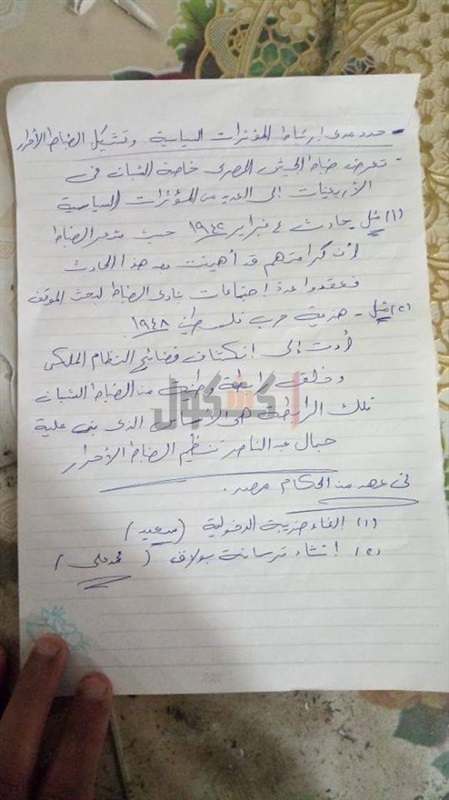 - حدد مدى ارتباط المؤثرات السياسية وتشكيل الضباط الأحرار
- تعرض ضباط الجيش المصرى خاصة الشبان فى
الأربعينات إلى العديد من المؤثرات السياسية
(١) مثل حادث ٤ فبراير ١٩٤٢ حيث شعر الضباط
أن كرامتهم قد أهينت بعد هذا الحادث
فعقدوا عدة اجتماعات بنادى الضباط لبحث الموقف
(٢) مثل - هزيمة حرب فلسطين ١٩٤٨
أدت إلى انكشاف فضائح النظام الملكى
وخلق رابطة وطنية من الضباط الشبان
كشكول
تلك الرابطة هى الأساس الذى بنى علية
جمال عبد الناصر تنظيم الضباط الأحرار
فى عهد من الحكام مصر .
(١) إلغاء ضريبة الدخولية (سعيد)
(٢) انشاء ترسانة بولاق (محمد على)